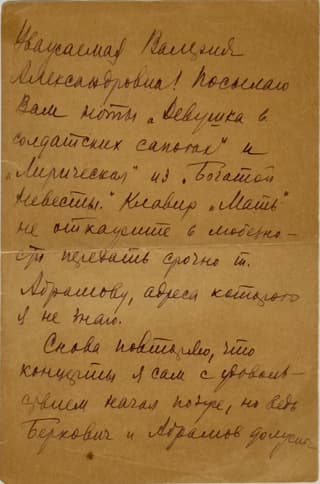 Уважаемая Валерия
Александровна! Посылаю
Вам ноты „Девушка в
солдатских сапогах" и
„Лирическая" из „Богатой
Невесты." Клавир „Мать"
не откажите в любезно-
сти передать срочно т.
Абрамову, адреса которого
я не знаю.
Снова повторяю, что
концерты я сам с удоволь-
ствием начал позже, но ведь
Беркович и Абрамов